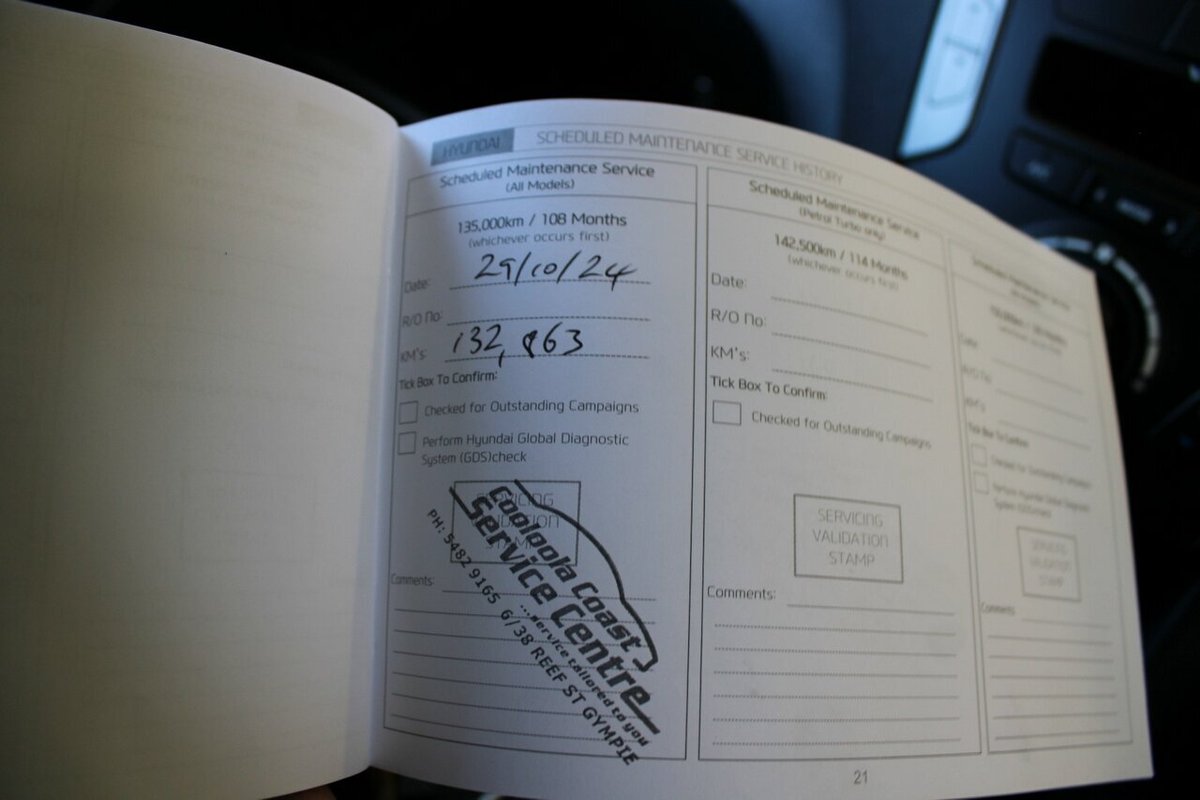 HYUNDAI
SCHEDULED MAINTENANCE SERVICE HISTORY
Scheduled Maintenance Service
(All Models)
135,000km / 108 Months
(whichever occurs first)
Date: 29/10/24
R/O No:
KM's: 132,863
Tick Box To Confirm:
Checked for Outstanding Campaigns
Perform Hyundai Global Diagnostic
System (GDS)check
SERVICING
VALIDATION
STAMP
Cooloola Coast
Service Centre
...service tailored to you
PH: 5482 9165 6/38 REEF ST GYMPIE
Comments:
Scheduled Maintenance Service
(Petrol Turbo only)
142,500km / 114 Months
(whichever occurs first)
Date:
R/O No:
KM's:
Tick Box To Confirm:
Checked for Outstanding Campaigns
SERVICING
VALIDATION
STAMP
Comments:
Scheduled Maintenance Service
(whichever occurs first)
Date:
R/O No:
KM's:
Tick Box To Confirm:
Checked for Outstanding Campaigns
Perform Hyundai Global Diagnostic
System (GDS)check
SERVICING
VALIDATION
STAMP
Comments:
21